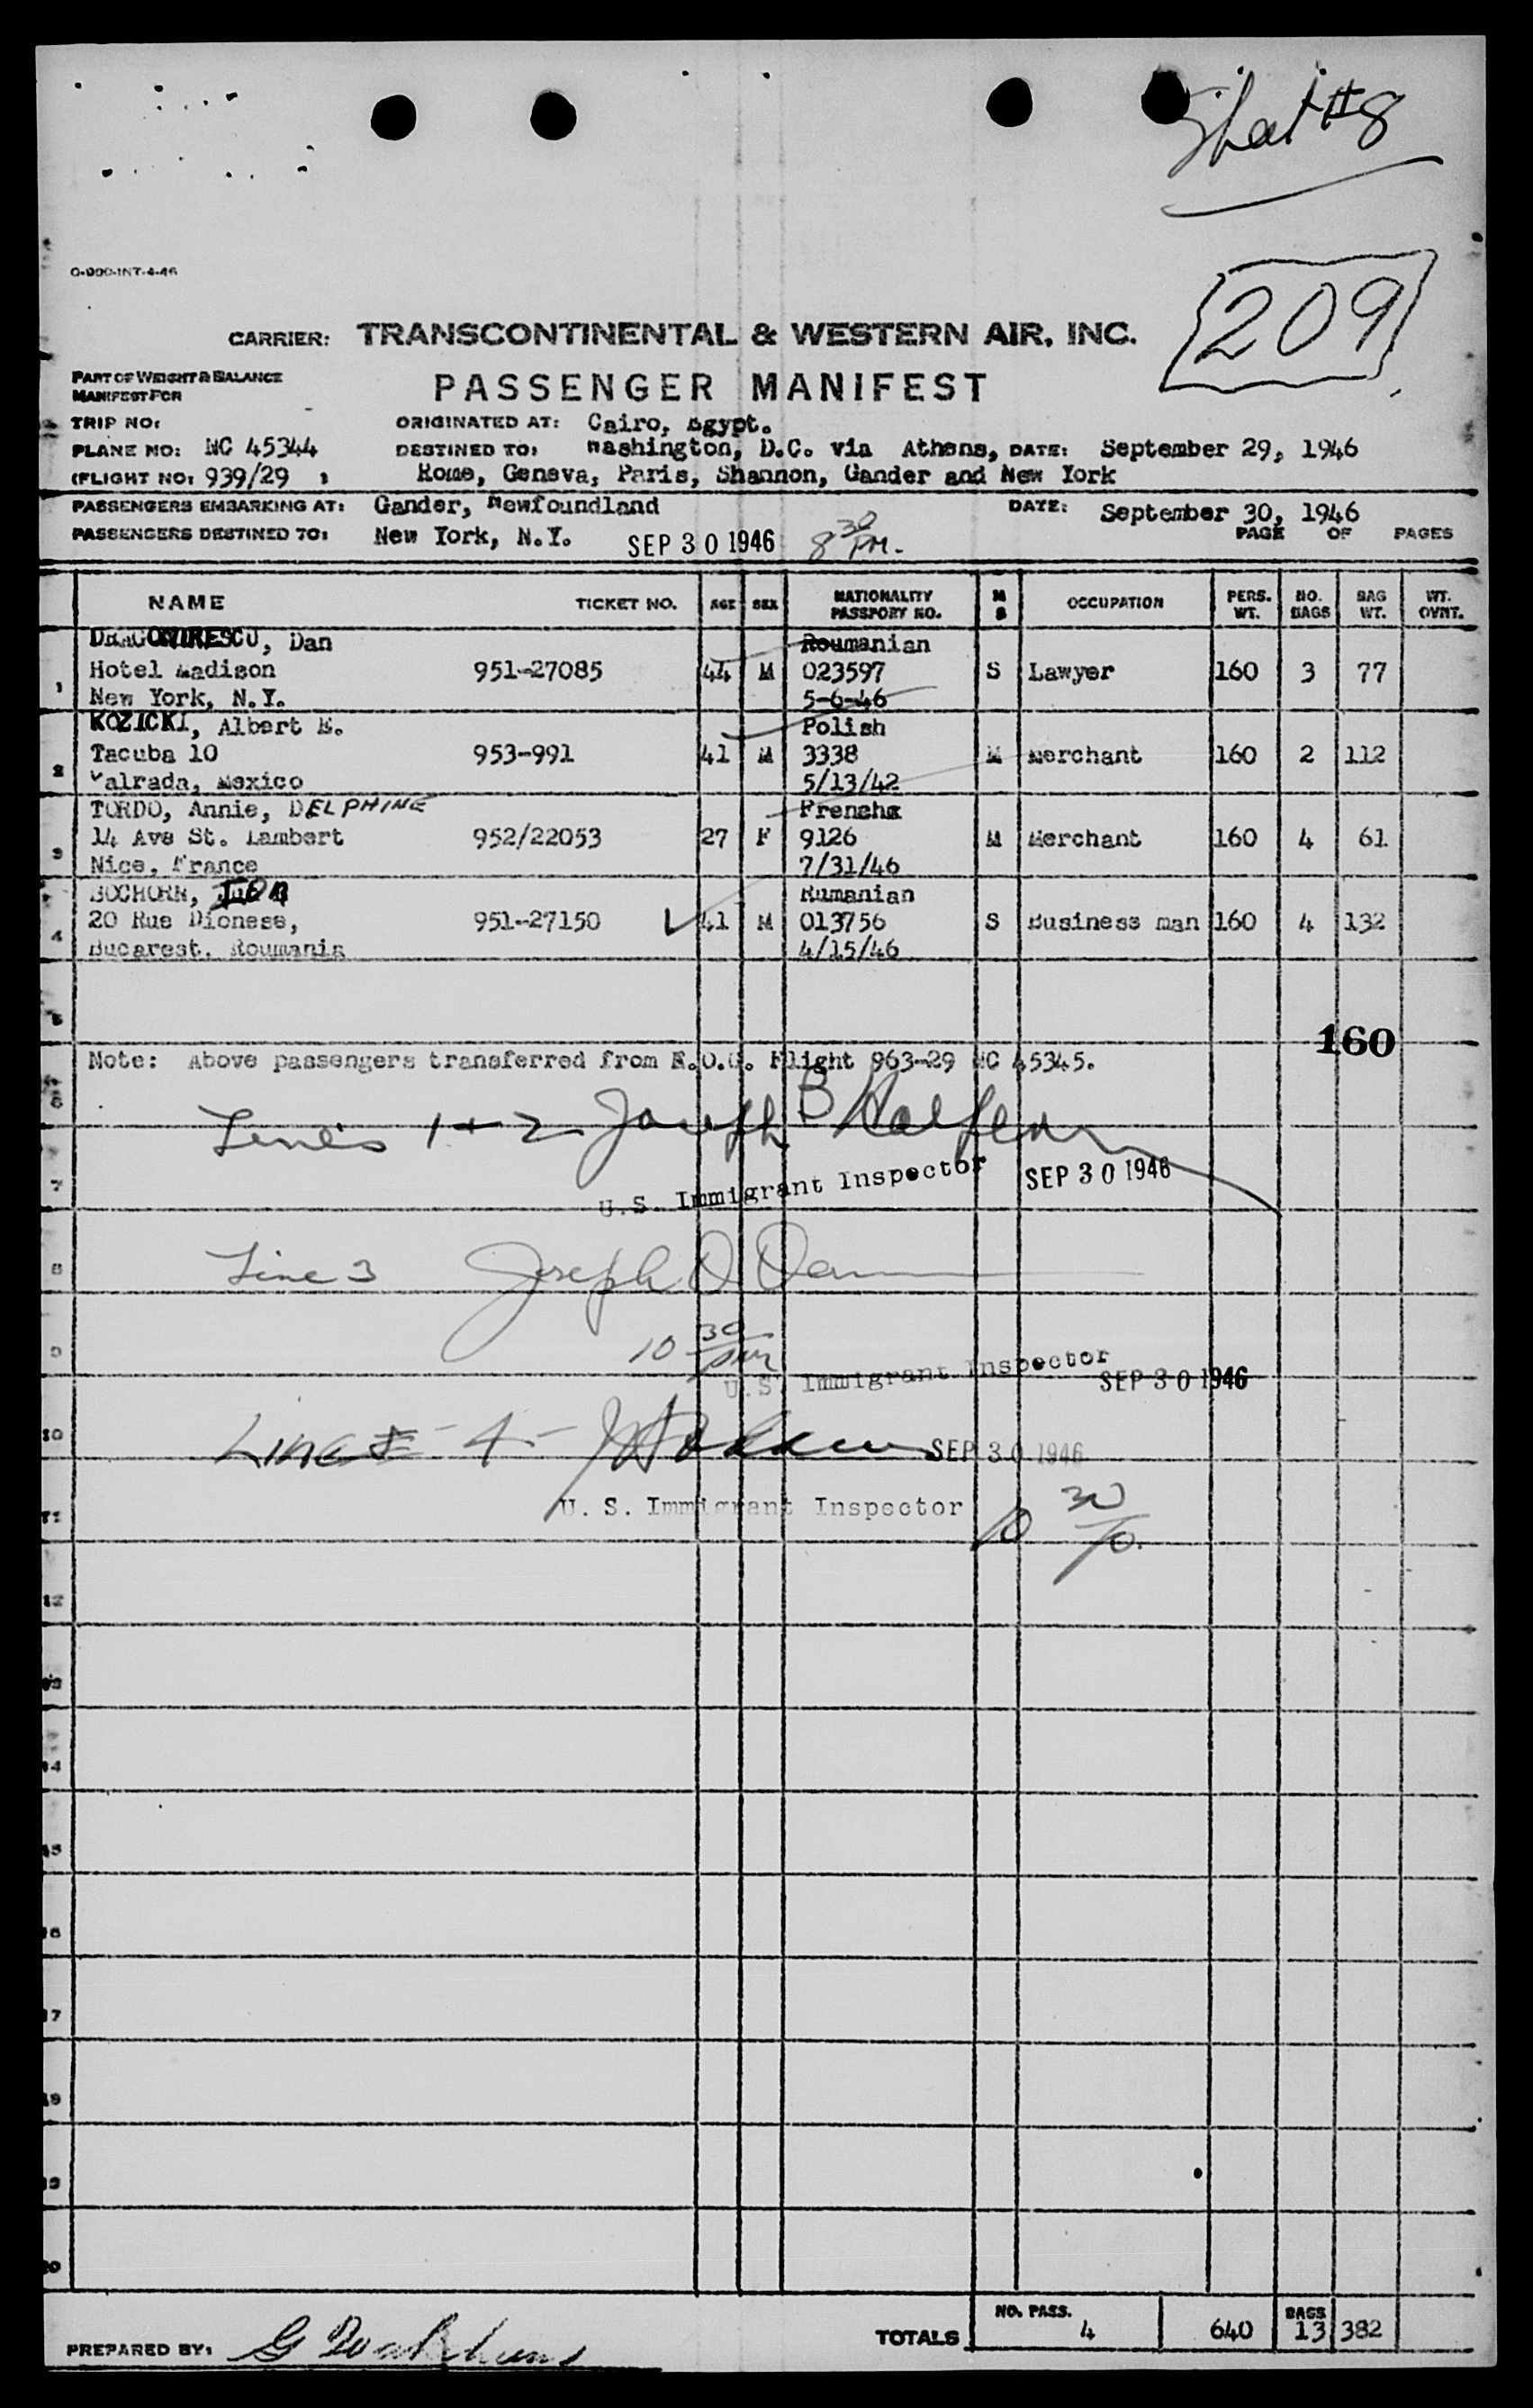 Sheet #8
O-900-INT-4-46
209
CARRIER: TRANSCONTINENTAL & WESTERN AIR, INC.
PART OF WEIGHT & BALANCE
MANIFEST FOR
PASSENGER MANIFEST
TRIP NO: ORIGINATED AT: Cairo, Egypt.
PLANE NO: NC 45344 DESTINED TO: Washington, D.C. via Athens, DATE: September 29, 1946
(FLIGHT NO: 939/29 ) Rome, Geneva, Paris, Shannon, Gander and New York
PASSENGERS EMBARKING AT: Gander, Newfoundland DATE: September 30, 1946
PASSENGERS DESTINED TO: New York, N.Y. SEP 30 1946 8 30 PM. PAGE OF PAGES
NAME TICKET NO. AGE SEX NATIONALITY PASSPORT NO. M S OCCUPATION PERS. WT. NO. BAGS BAG WT. WT. OVNT.
DRAGOMIRESCU, Dan Roumanian
1 Hotel Madison 951-27085 44 M 023597 S Lawyer 160 3 77
New York, N.Y. 5-6-46
KOZICKI, Albert E. Polish
2 Tacuba 10 953-991 41 M 3338 M Merchant 160 2 112
Valrada, Mexico 5/13/42
TORDO, Annie, DELPHINE Frenchx
3 14 Ave St. Lambert 952/22053 27 F 9126 M Merchant 160 4 61
Nice, France 7/31/46
BOCHORN, ION Rumanian
4 20 Rue Dionese, 951-27150 41 M 013756 S Business man 160 4 132
Bucarest, Roumania 4/15/46
5
160
Note: Above passengers transferred from E.O.U. Flight 963-29 NC 45345.
6
Lines 1 + 2 Joseph B
7
U.S. Immigrant Inspector SEP 30 1946
8 Line 3 Joseph D
9
10 30 pm
U.S. Immigrant Inspector SEP 30 1946
10 LINE 4 SEP 30 1946
11 U. S. Immigrant Inspector 10 30
12
13
14
15
16
17
19
19
20
NO. PASS. BAGS
TOTALS 4 640 13 382
PREPARED BY: G